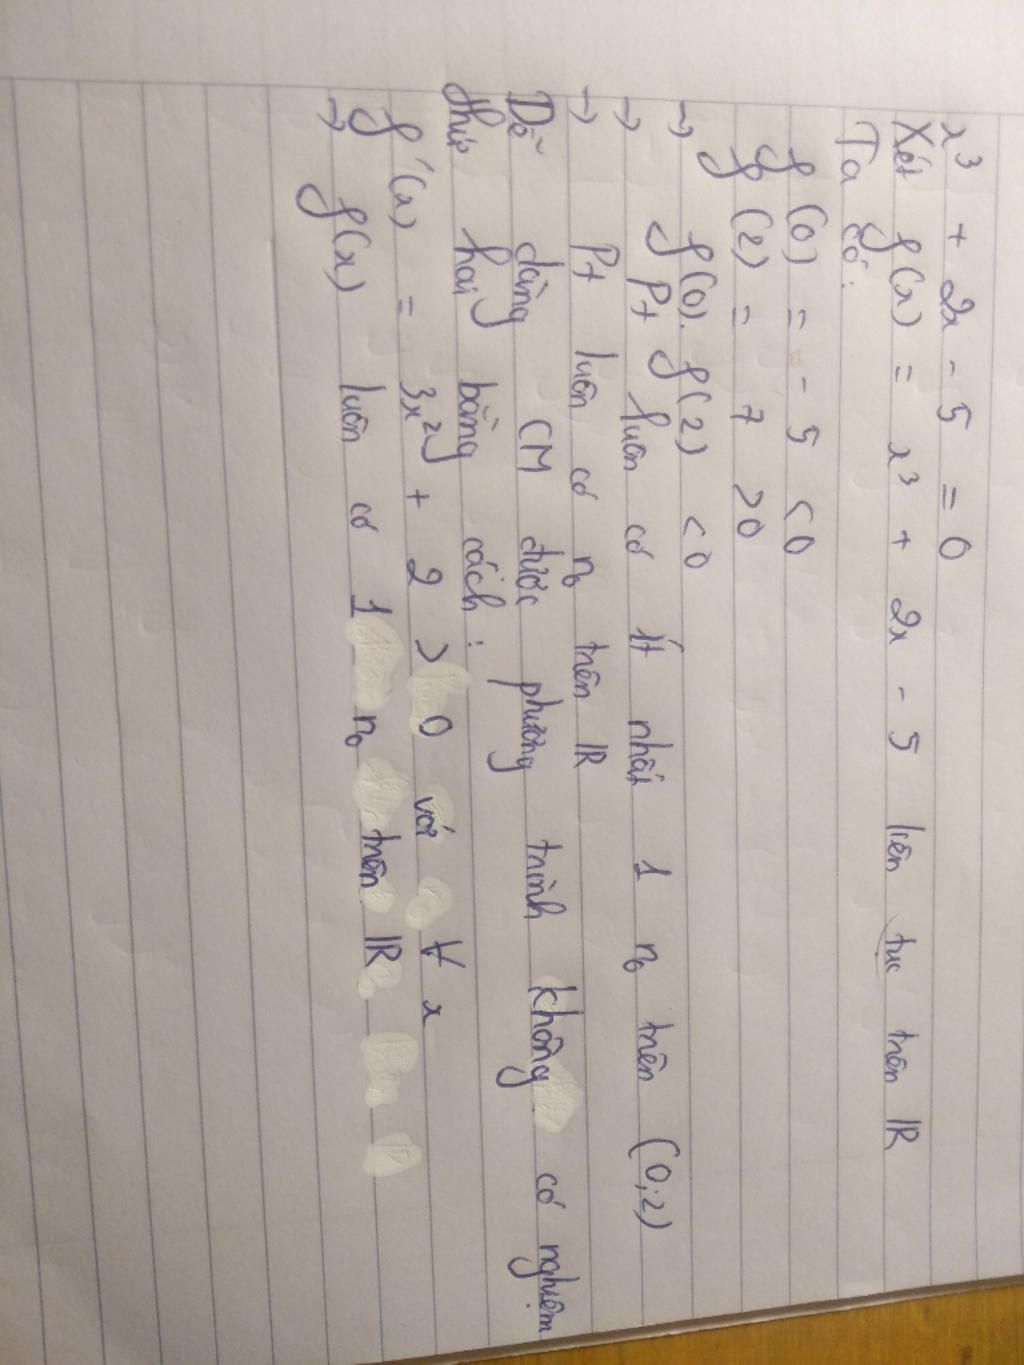 x³ + 2x - 5 = 0
Xét f(x) = x³ + 2x - 5 liên tục trên IR
Ta có:
f(0) = - 5 < 0
f(2) = 7 > 0
→ f(0). f(2) < 0
→ Pt luôn có ít nhất 1 nº trên (0;2)
→ Pt luôn có nº trên IR
Dễ dàng CM được phương trình không có nghiệm
thứ hai bằng cách:
f'(x) = 3x² + 2 > 0 với ∀ x
→ f(x) luôn có 1 nº trên IR